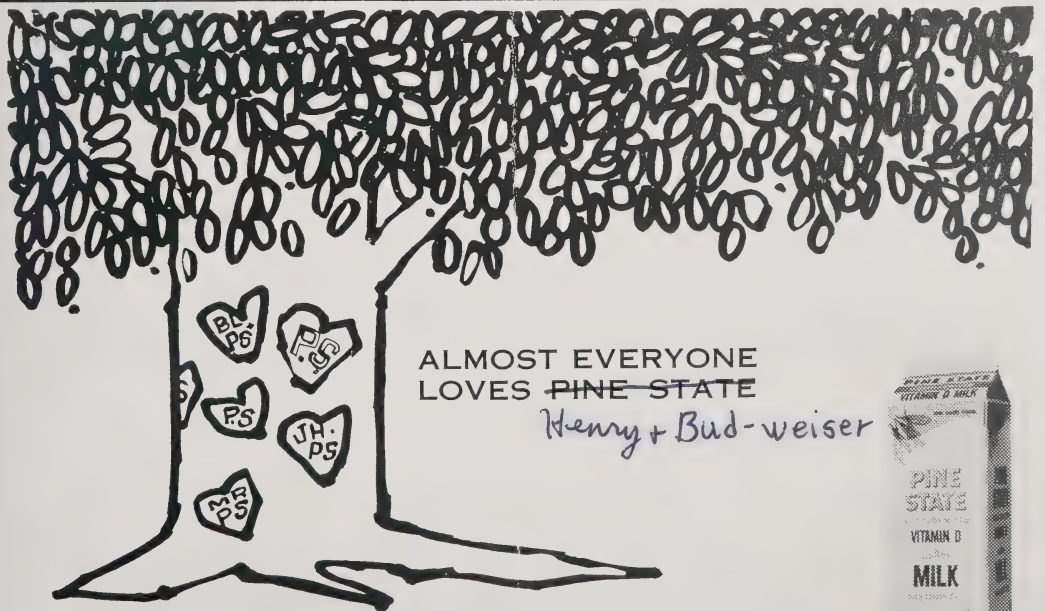 BL
PS
P.S.
S
P.S
JH.
PS
MR
PS
ALMOST EVERYONE
LOVES PINE STATE
Henry + Bud-weiser
PINE STATE
VITAMIN D MILK
PINE
STATE
VITAMIN D
MILK